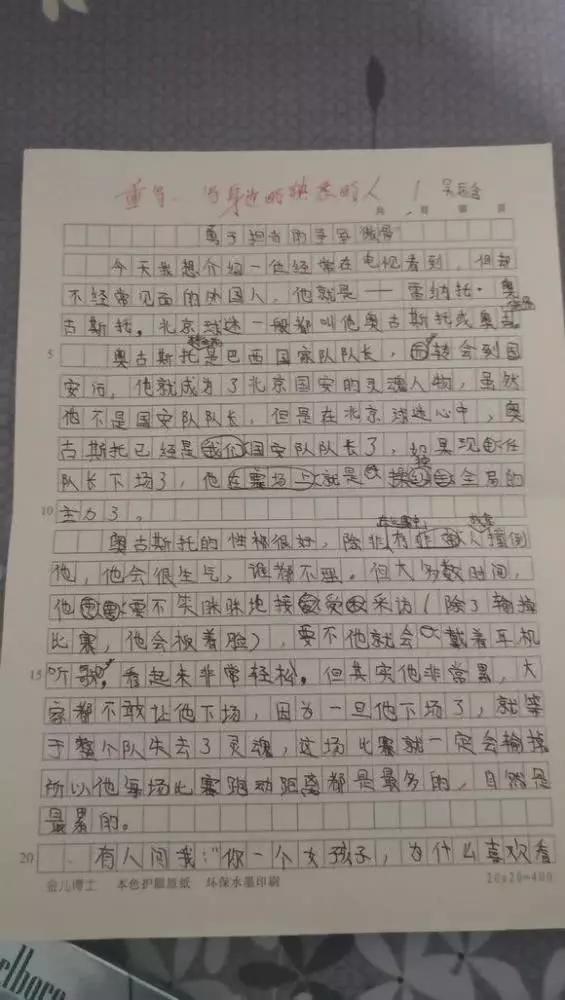 重写、写身边的熟悉的人 1 吴
共 页 第 页
勇于担当的
今天我想介绍一位经常在电视看到,但却
不经常见面的外国人,他就是——雷纳托·奥
古斯托。北京球迷一般都叫他奥古斯托或奥
5 奥古斯托是巴西国家队队长,转会到国
安后,他就成为了北京国安的灵魂人物,虽然
他不是国安队队长,但是在北京球迷心中,奥
古斯托已经是我们国安队队长了,如果现任
队长下场了,他在赛场上就是全局的
10 主力了。
奥古斯托的性格很好,除非有人撞倒
他,他会很生气,谁都不理。但大多数时间,
他要不笑眯眯地接受采访(除了输掉
比赛,他会板着脸),要不他就会戴着耳机
15 听歌,看起来非常轻松。但其实他非常累,大
家都不敢让他下场,因为一旦他下场了,就等
于整个队失去了灵魂,这场比赛就一定会输掉
所以他每场比赛跑动距离都是最多的,自然是
最累的。
20 有人问我:“你一个女孩子,为什么喜欢看
金儿博士 本色护眼原纸 环保水墨印刷 20x20=400
rlboro